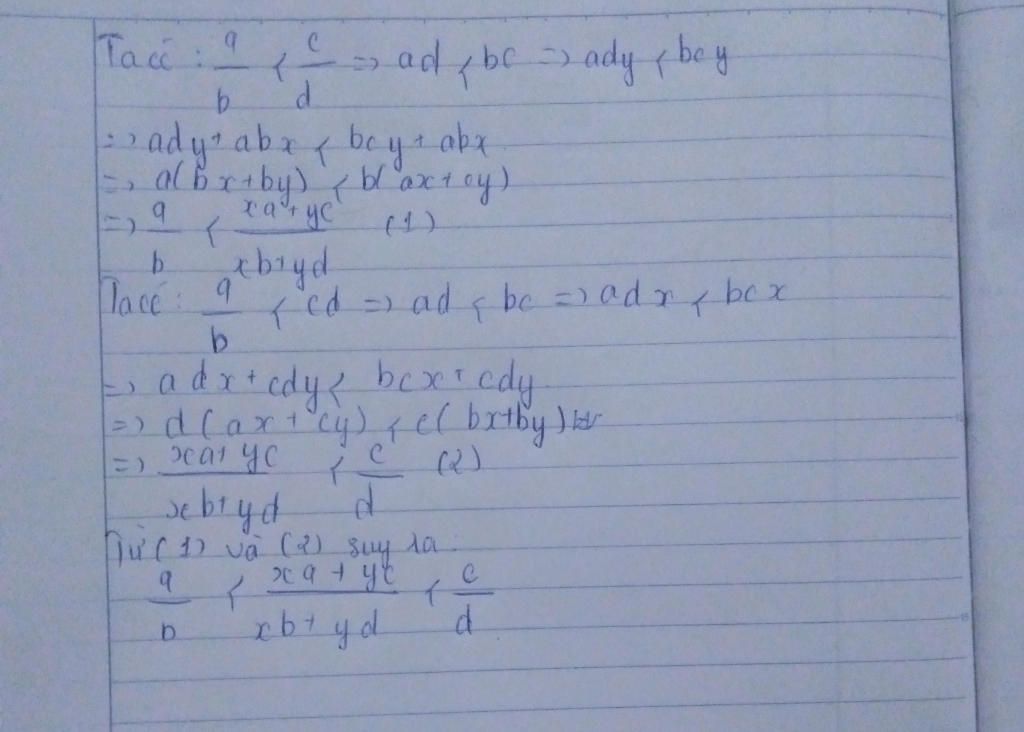 Ta có : a/b < c/d => ad < bc => ady < bcy
=> ady + abx < bcy + abx
=> a(bx+by) < b(ax+cy)
=> a/b < xa+yc/xb+yd (1)
Ta có : a/b < cd => ad < bc => adx < bcx
=> adx + cdy < bcx + cdy
=> d(ax + cy) < c(bx+by)
=> xa+yc/xb+yd < c/d (2)
Từ (1) và (2) suy ra :
a/b < xa + yc/xb + yd < c/d